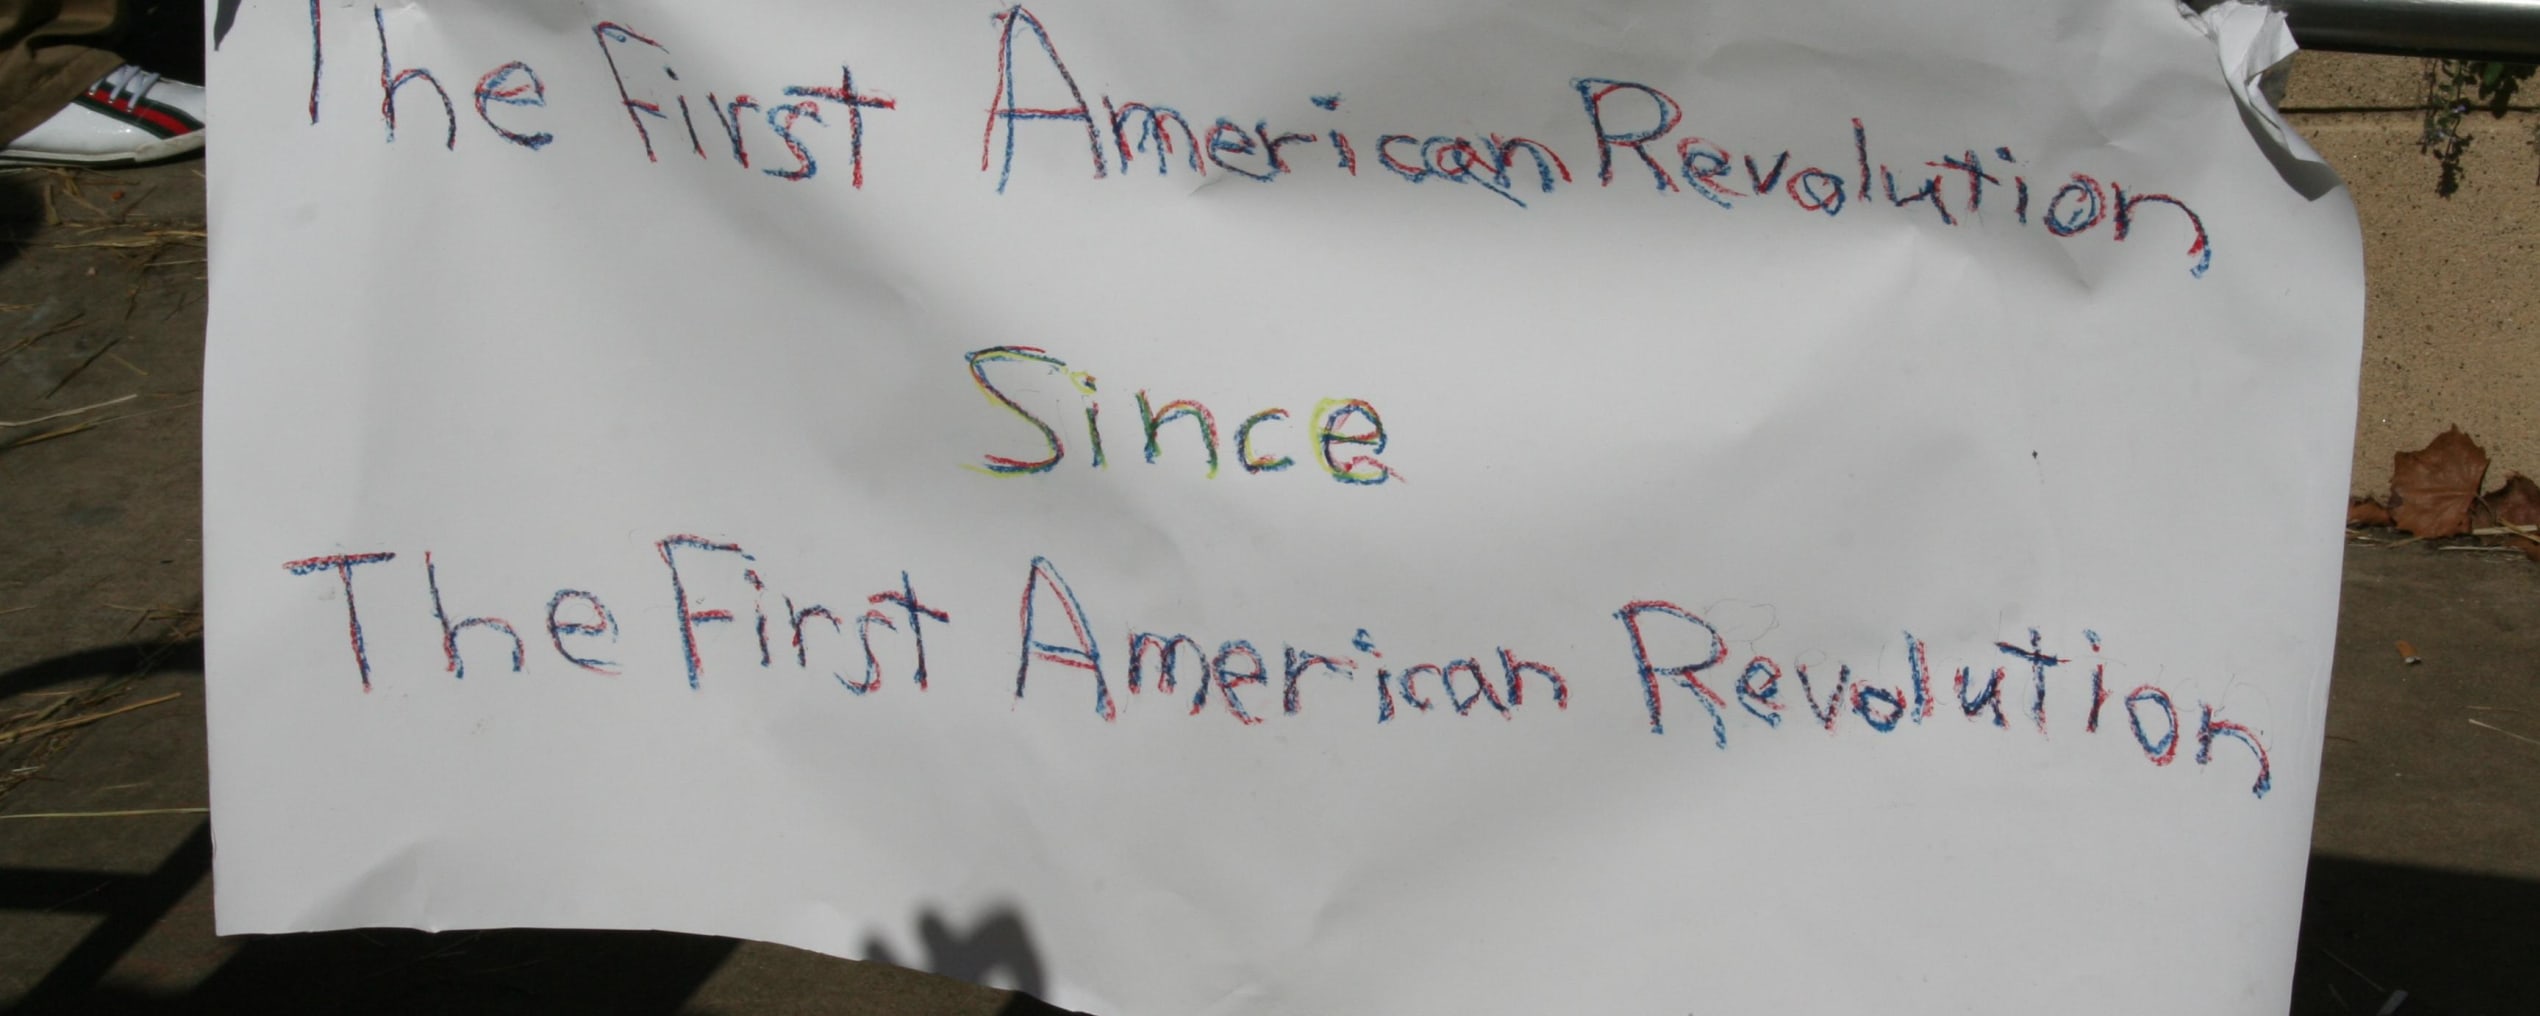 The First American Revolution
Since
The First American Revolution